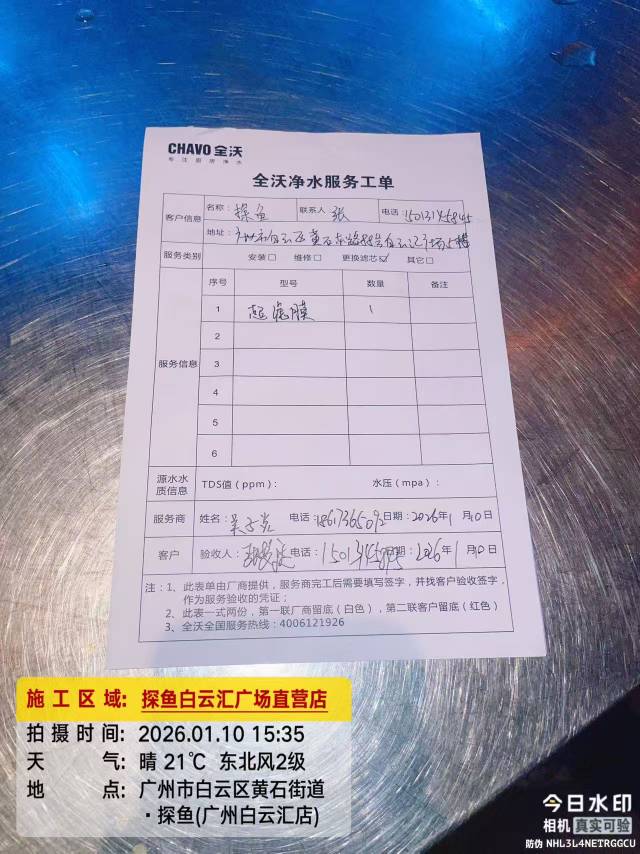 CHAVO 全沃
专注厨房净水
全沃净水服务工单
客户信息
名称: 探鱼 联系人 张 电话: 15013145845
地址: 广州市白云区黄石东路88号白云汇广场5楼
服务类别 安装□ 维修□ 更换滤芯☑ 其它□
服务信息
序号 型号 数量 备注
1 超滤膜 1
2
3
4
5
6
源水水质信息 TDS值(ppm): 水压(mpa):
服务商 姓名: 电话: 日期: 2026年1月10日
客户 验收人: 电话: 日期: 2026年1月10日
注: 1、此表单由厂商提供,服务商完工后需要填写签字,并找客户验收签字,
作为服务验收的凭证;
2、此表一式两份,第一联厂商留底(白色),第二联客户留底(红色)
3、全沃全国服务热线: 4006121926
施工区域: 探鱼白云汇广场直营店
拍摄时间: 2026.01.10 15:35
天气: 晴 21℃ 东北风2级
地点: 广州市白云区黄石街道
·探鱼(广州白云汇店)
今日水印
相机 真实可验
防伪 NHL3L4NETRGGCU